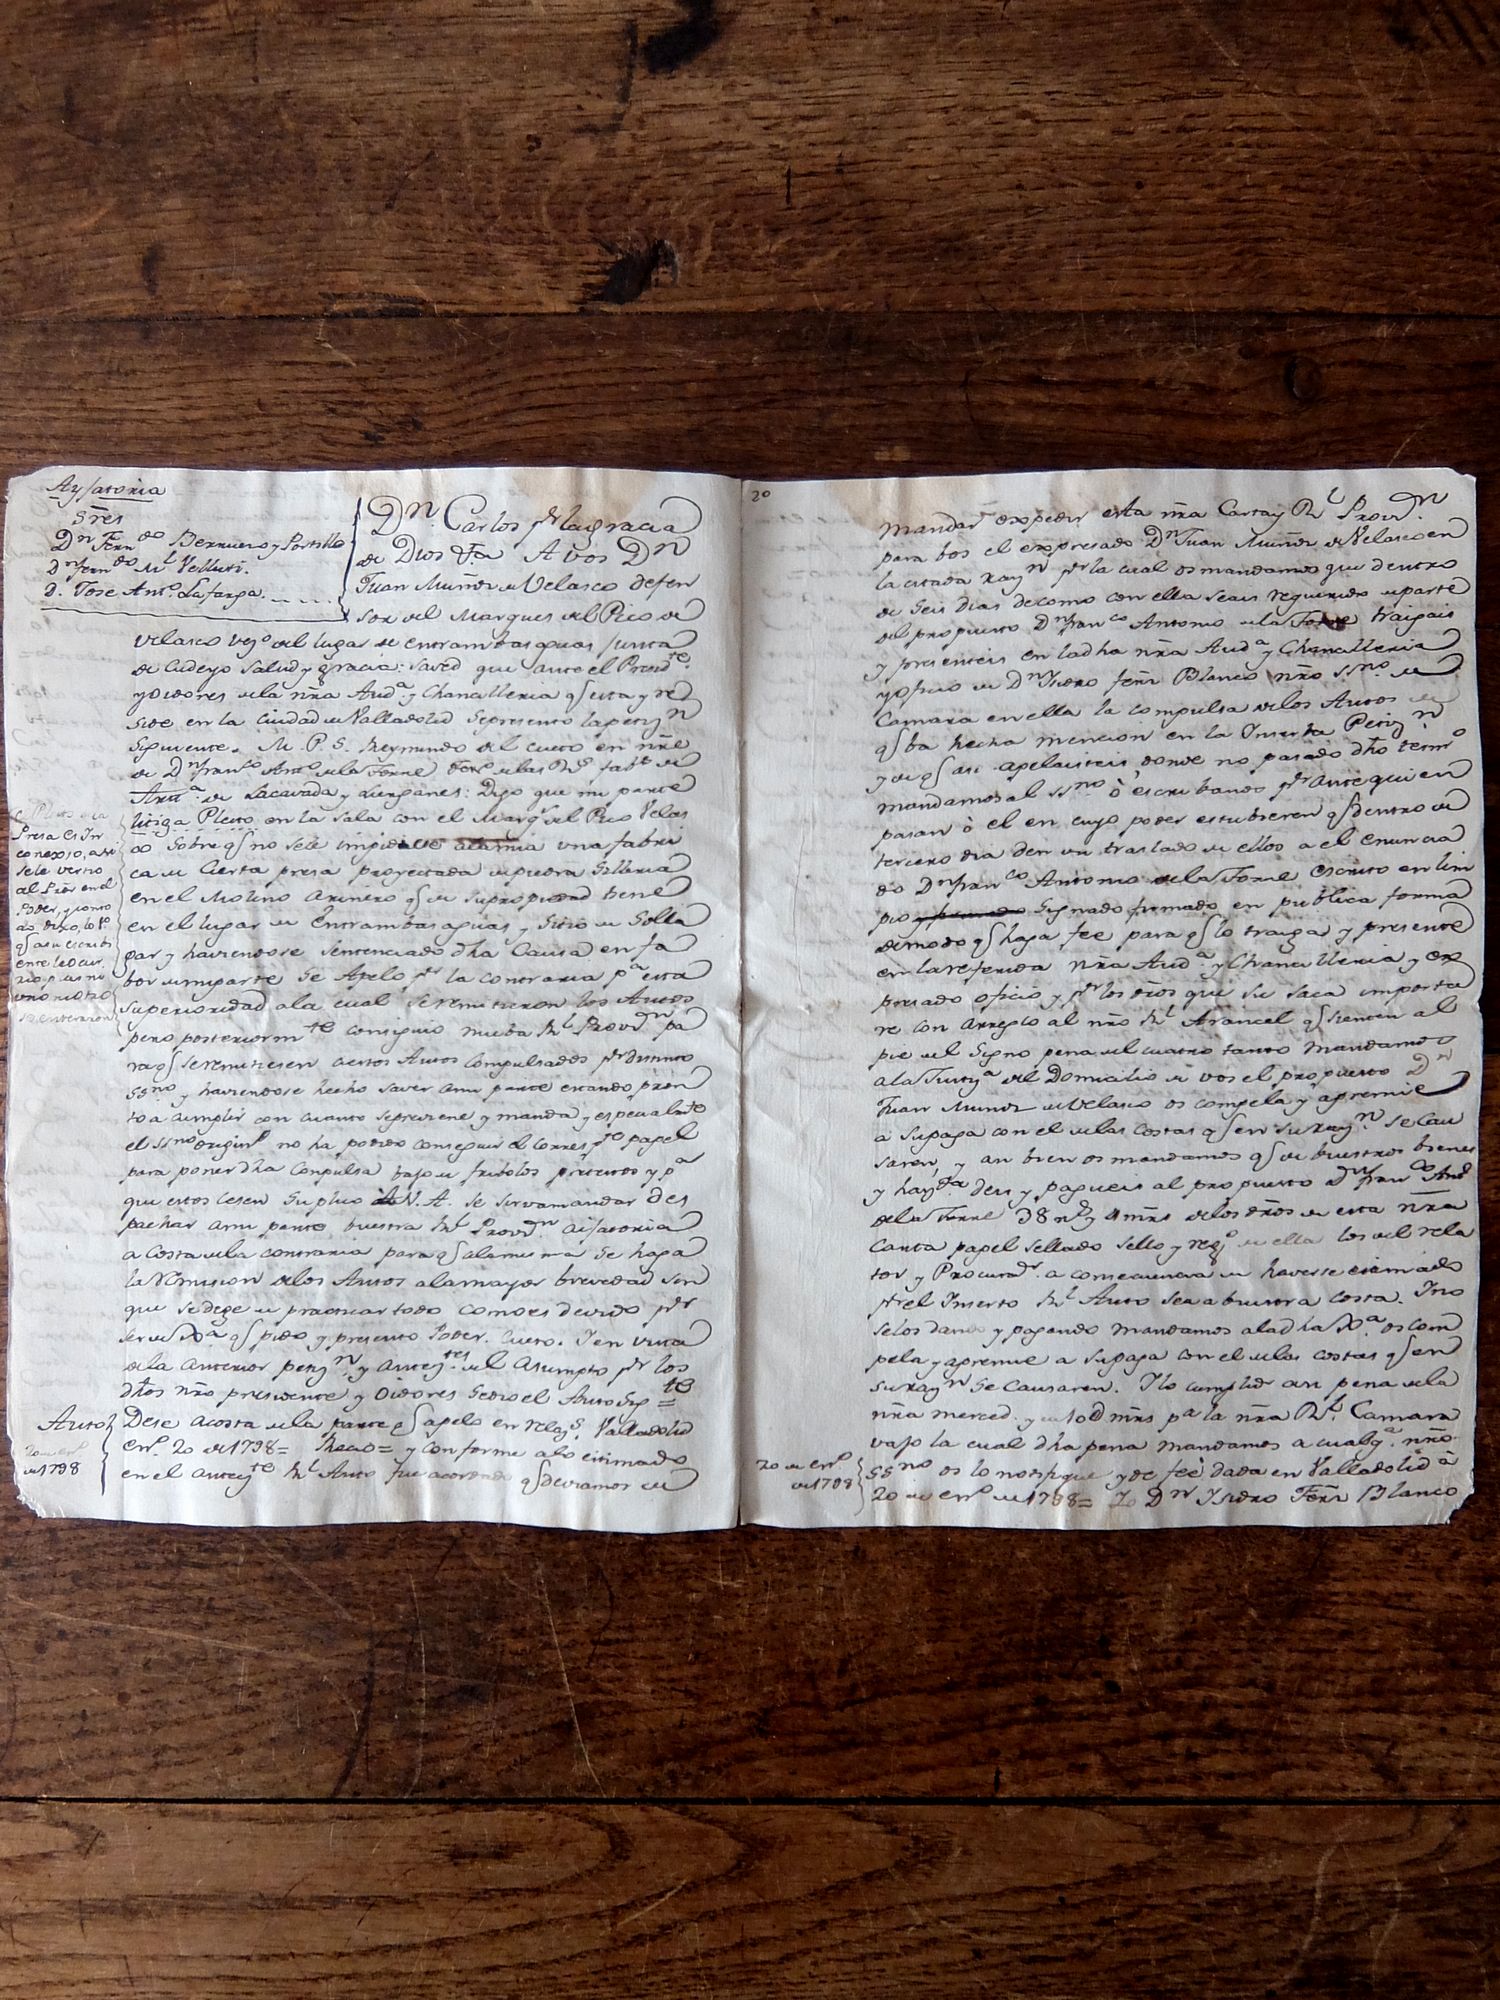 Aysatoria
Sres
Dn Ferndo Berruezo y Portillo
Dn ferndo Ml Velluti.
D. Jose Anto. Lafarga.
Dn. Carlos pr la gracia
de Dios &a. A vos Dn
Juan Muñoz de Velasco defen
sor del Marques del Pico de
Velasco vezo del lugar de entrambas aguas Junta
de Cudeyo Salud y gracia: Saved que ante el Presidte
y Oidores de la nra Auda. y Chancilleria q esta y re
side en la Ciudad de Valladolid se presento la petizn
siguiente. M. P. S. Bermundo del cueto en nre
de Dn franco Anto de la Torre Teno de las Rs fabs de
Arta. de Lacavada y Lierganes: Digo que mi parte
litiga Pleito en la Sala con el Marqs del Pico Velas
co sobre q no se le impida la una fabri
ca de Cierta presa proyectada de piedra Silleria
en el Molino arinero q de su propiedad tiene
en el lugar de Entrambasaguas y Sitio de Solla
gar y haviendose sentenciado dha Causa en fa
bor de mi parte se Apelo pr la contraria pa esta
superioridad a la cual se remitieron los Autos
pero posteriormte consiguio nueba Rl Provn pa
ra q se remitiesen ciertos Autos Compulsados pr distinto
ssno y haviendose hecho saver a mi parte estando pron
to a cumplir con cuanto se previene y manda y especialmte
el ssno originl no ha podido conseguir el Corresptе papel
para poner dha Conpulsa bajo de fribolos pretextos y pa
que estos cesen Suplico A V. A. se sirva mandar des
pachar a mi parte buestra Rl Provn. aisatoria
a costa de la contraria para q a la misma se haga
la Remision de los Autos a la mayor brevedad sin
que se deje de practicar todo como es devido pr
ser de Xa q pido y presento Poder. Cueto. Y en vista
de la anterior petizn y antezte del Asumpto pr los
dhos nro presidente y Oidores se dio el Auto sigte =
Auto
20 de enro
de 1798
Dese acosta de la parte q apelo en relazs. Valladolid
enro. 20 de 1798 = Recio = y conforme a lo estimado
en el antezte Rl Auto fue acordado q deviamos de
Pleito de la
Presa es In
conexo, asi
se le vertio
al Prior en el
Poder, y conto
do, dixo,
q
ente
uno
se enteraron
20
mandar expedir esta nra Carta y Rl Provn.
para bos el expresado Dn Juan Muñoz de Velasco en
la citada razn pr la cual os mandamos que dentro
de Seis dias de como con ella seais requerido de parte
del propuesto Dn franco Antonio de la Torre traigais
y presenteis en la dha nra Auda y Chancilleria
y oficio de Dn Isidro fern Blanco nro ssno de
Camara en ella la compulsa de los Autos de
q ba hecha mencion en la Inserta Petizn
y de q asi apelasteis, donde no pasado dho termo
mandamos al ssno ò escribanos pr ante quien
pasan ò el en cuyo poder estubieren q dentro de
tercero dia den un traslado de ellos a el enuncia
do Dn franco Antonio de la Torre escrito en lim
pio y firmado Signado firmado en publica forma
de modo q haga fee para q lo traiga y presente
en la referida nra Auda y Chancilleria y ex
presado oficio y pr los dros que de su saca importa
re con arreglo al nro Rl Arancel q sienten al
pie del Signo pena del cuatro tanto mandamos
a la Justa del Domicilio de vos el propuesto Dn
Juan Munoz de Velasco os compela y apremie
a su paga con el de las costas q en su razn. se cau
saren, y an bien os mandamos q de buestros bienes
y hazda deis y pagueis al propuesto Dn franco Anto
de la Torre 38 rs y 4 mrs de los dros de esta nra
Carta papel sellado sello y rego de ella los del rela
tor y Procurar. a consecuencia de haverse estimado
pr el Inserto Rl Auto sea a buestra costa. I no
selos dando y pagando mandamos a la dha Xa os com
pela y apremie a su paga con el de las costas q en
su razn se causaren. I lo cumplid an pena de la
nra merced y de 10d mrs pa la nra Rl. Camara
vajo la cual dha pena mandamos a cualqa. nro
ssno os lo notifique y de fee dada en Valladolid à
20 de enro de 1798 = Io Dn Isidro Fern Blanco
20 de enro.
de 1798